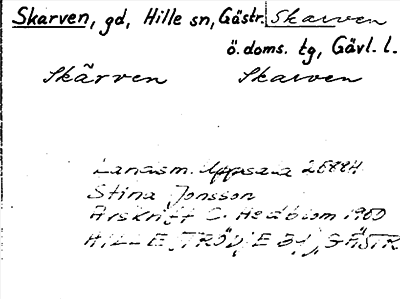 Skarven, gd, Hille sn, Gästr. Skarven
ö. doms. tg, Gävl. l.
Skärven Skarven
Landsm. Uppsala
Stina Jonsson
Årsskrift C. Hedblom 1960
HILLE, TRÖDJE BY, GÄSTR